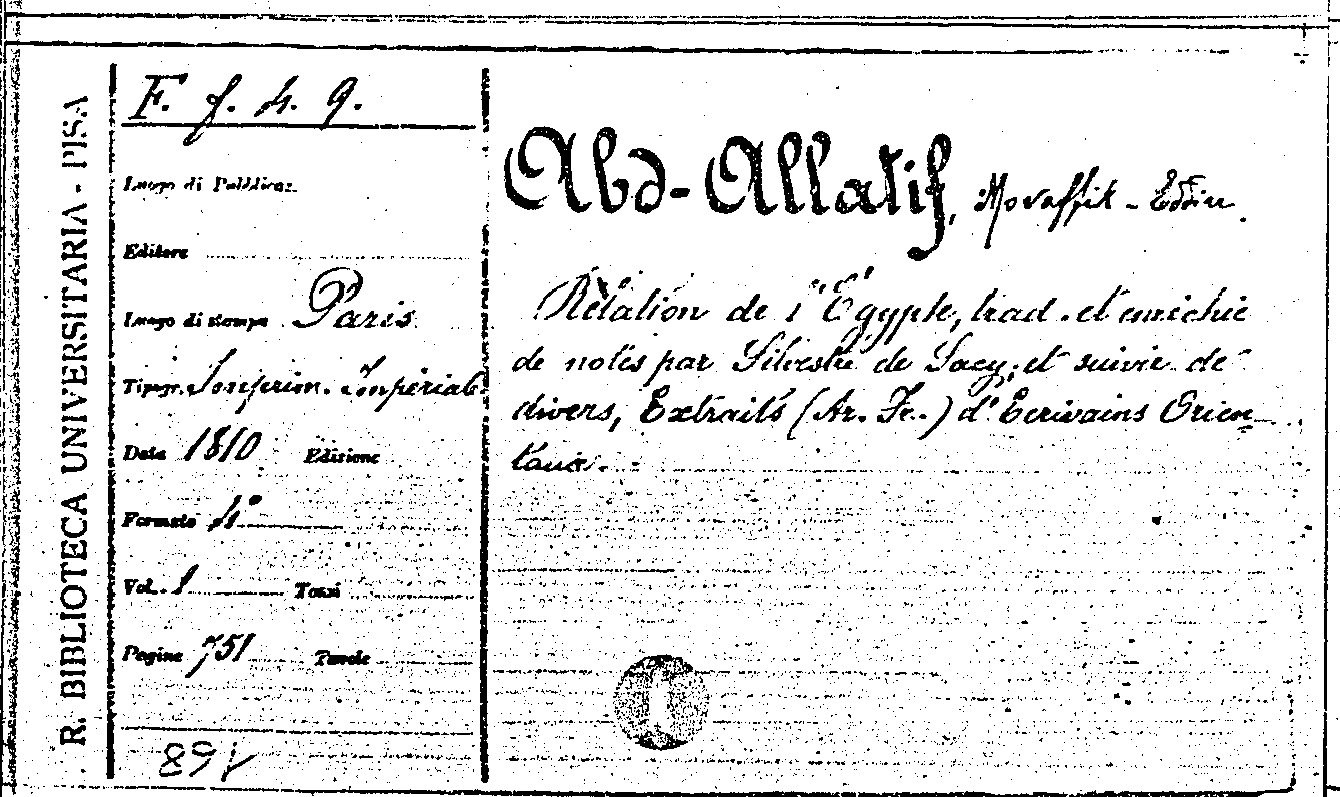 R. BIBLIOTECA UNIVERSITARIA - PISA
F. f. 4. 9.
Luogo di Pubblicaz.
Editore
Luogo di stampa Paris
Tipogr. Imprim. Impériale
Data 1810 Edizione
Formato 4°
Vol. 1 Tomi
Pagine 751 Tavole
Abd-Allatif, Movaffik-Eddin.
Rélation de l'Égypte, trad. et enrichie
de notes par Silvestre de Sacy, et suivie de
divers, Extraits (Ar. Fr.) d'Écrivains Orien-
taux.